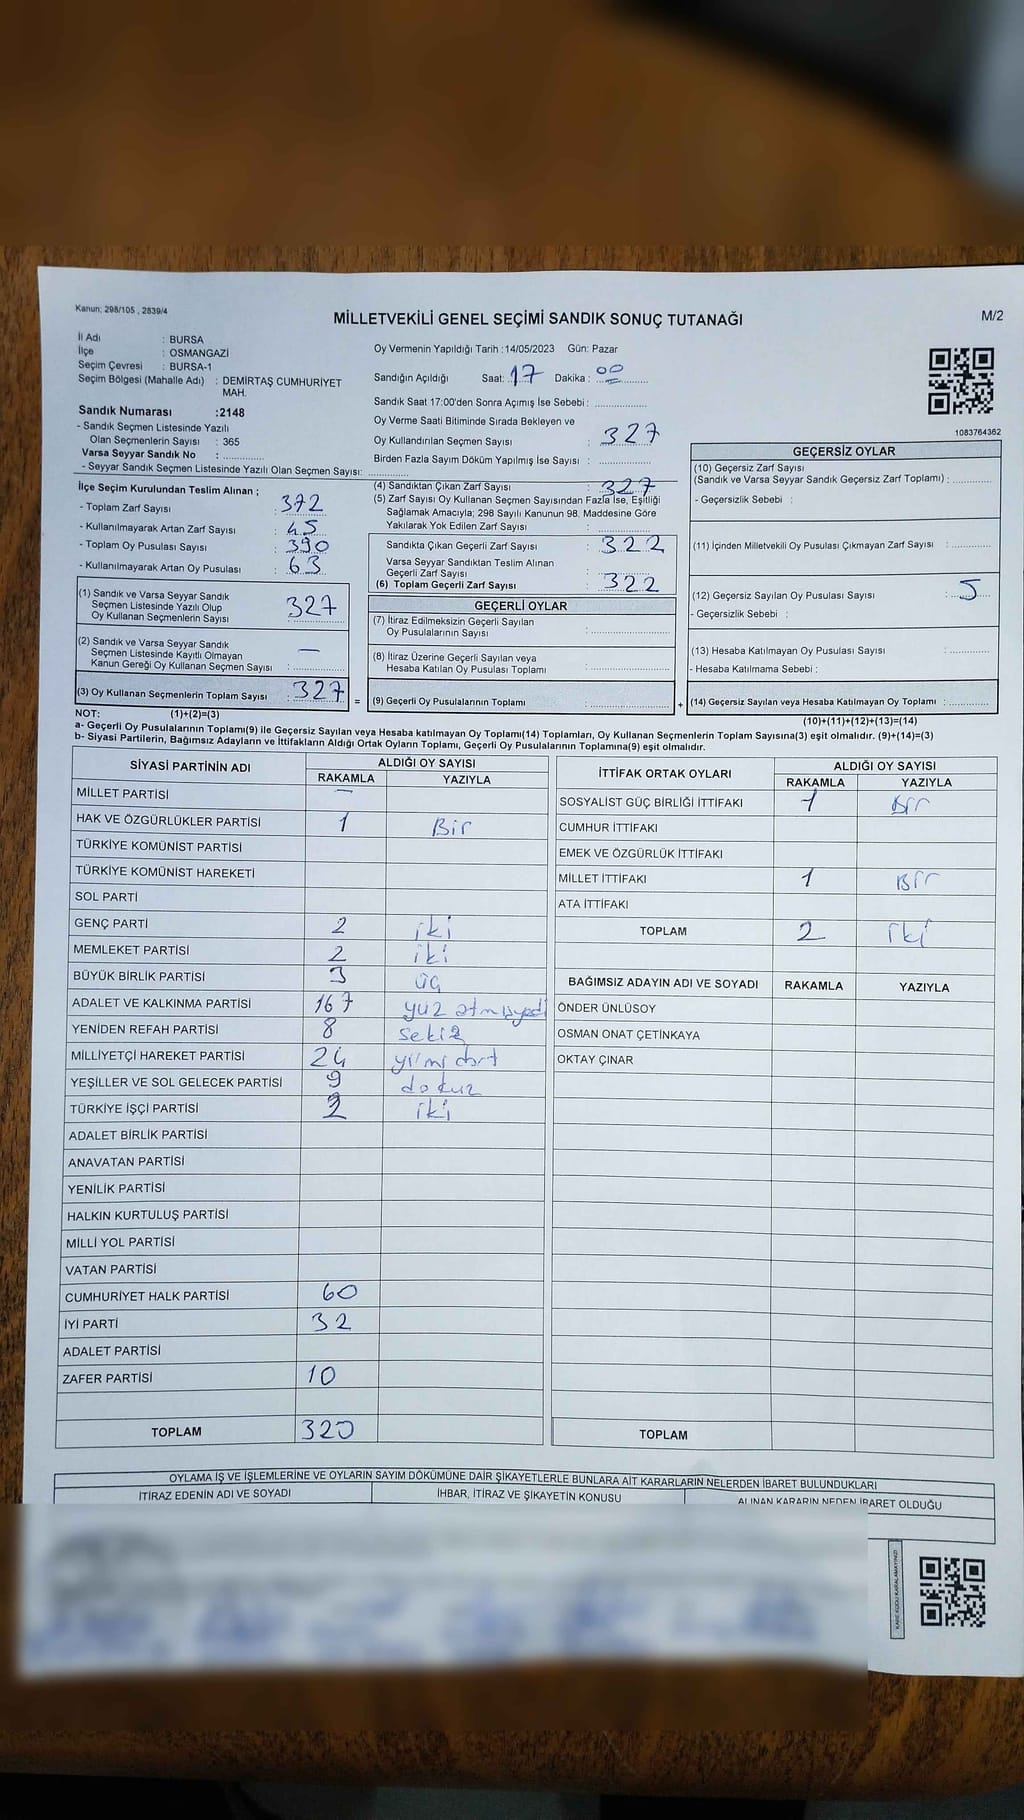 Kanun; 298/105 , 2839/4
MİLLETVEKİLİ GENEL SEÇİMİ SANDIK SONUÇ TUTANAĞI
M/2
İl Adı : BURSA
İlçe : OSMANGAZİ
Seçim Çevresi : BURSA-1
Seçim Bölgesi (Mahalle Adı) : DEMİRTAŞ CUMHURİYET
MAH.
Sandık Numarası :2148
- Sandık Seçmen Listesinde Yazılı
Olan Seçmenlerin Sayısı : 365
Varsa Seyyar Sandık No : ..............
- Seyyar Sandık Seçmen Listesinde Yazılı Olan Seçmen Sayısı: ..............
Oy Vermenin Yapıldığı Tarih :14/05/2023 Gün: Pazar
Sandığın Açıldığı Saat: 17 Dakika : 00
Sandık Saat 17:00'den Sonra Açımış İse Sebebi : ..............
Oy Verme Saati Bitiminde Sırada Bekleyen ve
Oy Kullandırılan Seçmen Sayısı : 327
Birden Fazla Sayım Döküm Yapılmış İse Sayısı : ..............
1083764362
İlçe Seçim Kurulundan Teslim Alınan ;
- Toplam Zarf Sayısı : 372
- Kullanılmayarak Artan Zarf Sayısı : 45
- Toplam Oy Pusulası Sayısı : 390
- Kullanılmayarak Artan Oy Pusulası : 63
(1) Sandık ve Varsa Seyyar Sandık
Seçmen Listesinde Yazılı Olup
Oy Kullanan Seçmenlerin Sayısı : 327
(2) Sandık ve Varsa Seyyar Sandık
Seçmen Listesinde Kayıtlı Olmayan
Kanun Gereği Oy Kullanan Seçmen Sayısı : —
(3) Oy Kullanan Seçmenlerin Toplam Sayısı : 327
(1)+(2)=(3)
(4) Sandıktan Çıkan Zarf Sayısı : 327
(5) Zarf Sayısı Oy Kullanan Seçmen Sayısından Fazla İse, Eşitliği
Sağlamak Amacıyla; 298 Sayılı Kanunun 98. Maddesine Göre
Yakılarak Yok Edilen Zarf Sayısı : ..............
Sandıkta Çıkan Geçerli Zarf Sayısı : 322
Varsa Seyyar Sandıktan Teslim Alınan
Geçerli Zarf Sayısı : ..............
(6) Toplam Geçerli Zarf Sayısı : 322
GEÇERLİ OYLAR
(7) İtiraz Edilmeksizin Geçerli Sayılan
Oy Pusulalarının Sayısı : ..............
(8) İtiraz Üzerine Geçerli Sayılan veya
Hesaba Katılan Oy Pusulası Toplamı : ..............
= (9) Geçerli Oy Pusulalarının Toplamı : ..............
GEÇERSİZ OYLAR
(10) Geçersiz Zarf Sayısı
(Sandık ve Varsa Seyyar Sandık Geçersiz Zarf Toplamı) : ..............
- Geçersizlik Sebebi :
(11) İçinden Milletvekili Oy Pusulası Çıkmayan Zarf Sayısı : ..............
(12) Geçersiz Sayılan Oy Pusulası Sayısı : 5
- Geçersizlik Sebebi :
(13) Hesaba Katılmayan Oy Pusulası Sayısı : ..............
- Hesaba Katılmama Sebebi :
+ (14) Geçersiz Sayılan veya Hesaba Katılmayan Oy Toplamı : ..............
(10)+(11)+(12)+(13)=(14)
NOT:
a- Geçerli Oy Pusulalarının Toplamı(9) ile Geçersiz Sayılan veya Hesaba katılmayan Oy Toplamı(14) Toplamları, Oy Kullanan Seçmenlerin Toplam Sayısına(3) eşit olmalıdır. (9)+(14)=(3)
b- Siyasi Partilerin, Bağımsız Adayların ve İttifakların Aldığı Ortak Oyların Toplamı, Geçerli Oy Pusulalarının Toplamına(9) eşit olmalıdır.
SİYASİ PARTİNİN ADI ALDIĞI OY SAYISI
RAKAMLA YAZIYLA
MİLLET PARTİSİ —
HAK VE ÖZGÜRLÜKLER PARTİSİ 1 Bir
TÜRKİYE KOMÜNİST PARTİSİ
TÜRKİYE KOMÜNİST HAREKETİ
SOL PARTİ
GENÇ PARTİ 2 iki
MEMLEKET PARTİSİ 2 iki
BÜYÜK BİRLİK PARTİSİ 3 üç
ADALET VE KALKINMA PARTİSİ 167 yüz atmışyedi
YENİDEN REFAH PARTİSİ 8 sekiz
MİLLİYETÇİ HAREKET PARTİSİ 24 yirmi dört
YEŞİLLER VE SOL GELECEK PARTİSİ 9 dokuz
TÜRKİYE İŞÇİ PARTİSİ 2 iki
ADALET BİRLİK PARTİSİ
ANAVATAN PARTİSİ
YENİLİK PARTİSİ
HALKIN KURTULUŞ PARTİSİ
MİLLİ YOL PARTİSİ
VATAN PARTİSİ
CUMHURİYET HALK PARTİSİ 60
İYİ PARTİ 32
ADALET PARTİSİ
ZAFER PARTİSİ 10
TOPLAM 320
İTTİFAK ORTAK OYLARI ALDIĞI OY SAYISI
RAKAMLA YAZIYLA
SOSYALİST GÜÇ BİRLİĞİ İTTİFAKI 1 Bir
CUMHUR İTTİFAKI
EMEK VE ÖZGÜRLÜK İTTİFAKI
MİLLET İTTİFAKI 1 Bir
ATA İTTİFAKI
TOPLAM 2 iki
BAĞIMSIZ ADAYIN ADI VE SOYADI RAKAMLA YAZIYLA
ÖNDER ÜNLÜSOY
OSMAN ONAT ÇETİNKAYA
OKTAY ÇINAR
TOPLAM
OYLAMA İŞ VE İŞLEMLERİNE VE OYLARIN SAYIM DÖKÜMÜNE DAİR ŞİKAYETLERLE BUNLARA AİT KARARLARIN NELERDEN İBARET BULUNDUKLARI
İTİRAZ EDENİN ADI VE SOYADI İHBAR, İTİRAZ VE ŞİKAYETİN KONUSU ALINAN KARARIN NEDEN İBARET OLDUĞU
KARE KODU KARALAMAYINIZ!